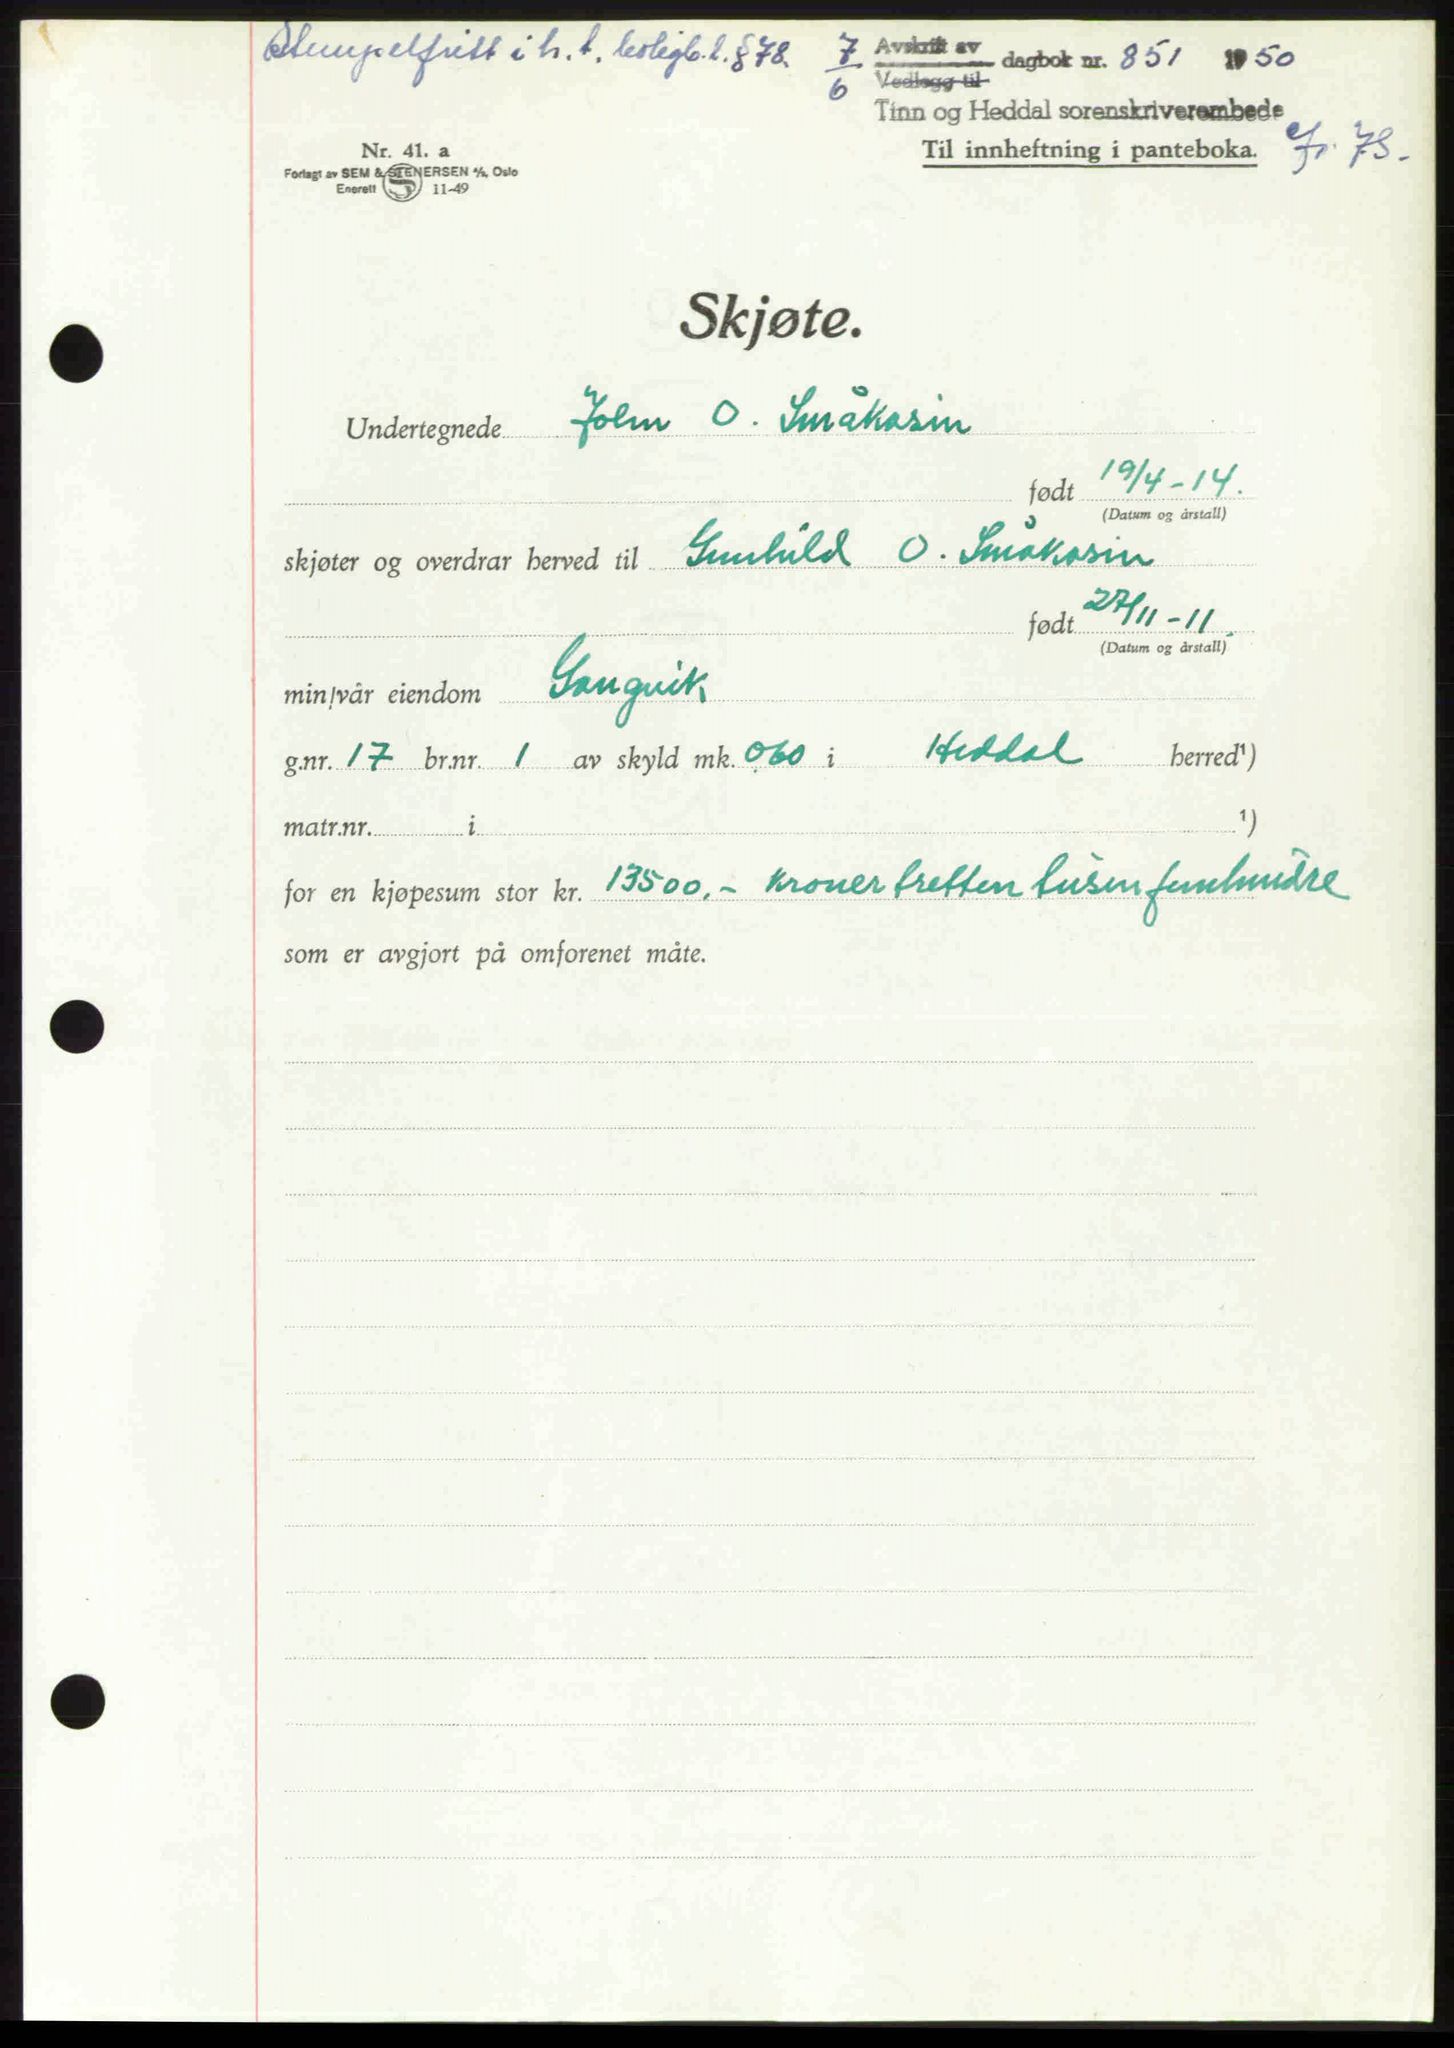 Stempelfritt i h. t. boligb. l. § 78. 7/6 Avskrift av
Vedlegg til dagbok nr. 851 1950
Tinn og Heddal sorenskriverembede
Til innheftning i panteboka.
Nr. 41. a
Forlagt av SEM & STENERSEN A/S, Oslo
Enerett S 11-49
Skjøte.
Undertegnede John O. Småkasin
født 19/4-14.
(Datum og årstall)
skjøter og overdrar herved til Gunhild O. Småkasin
født 27/11-11.
(Datum og årstall)
min/vår eiendom Gangvik
g.nr. 17 br.nr. 1 av skyld mk. 0,60 i Heddal herred¹)
matr.nr. i ¹)
for en kjøpesum stor kr. 13500.- kroner tretten tusen femhundre
som er avgjort på omforenet måte.